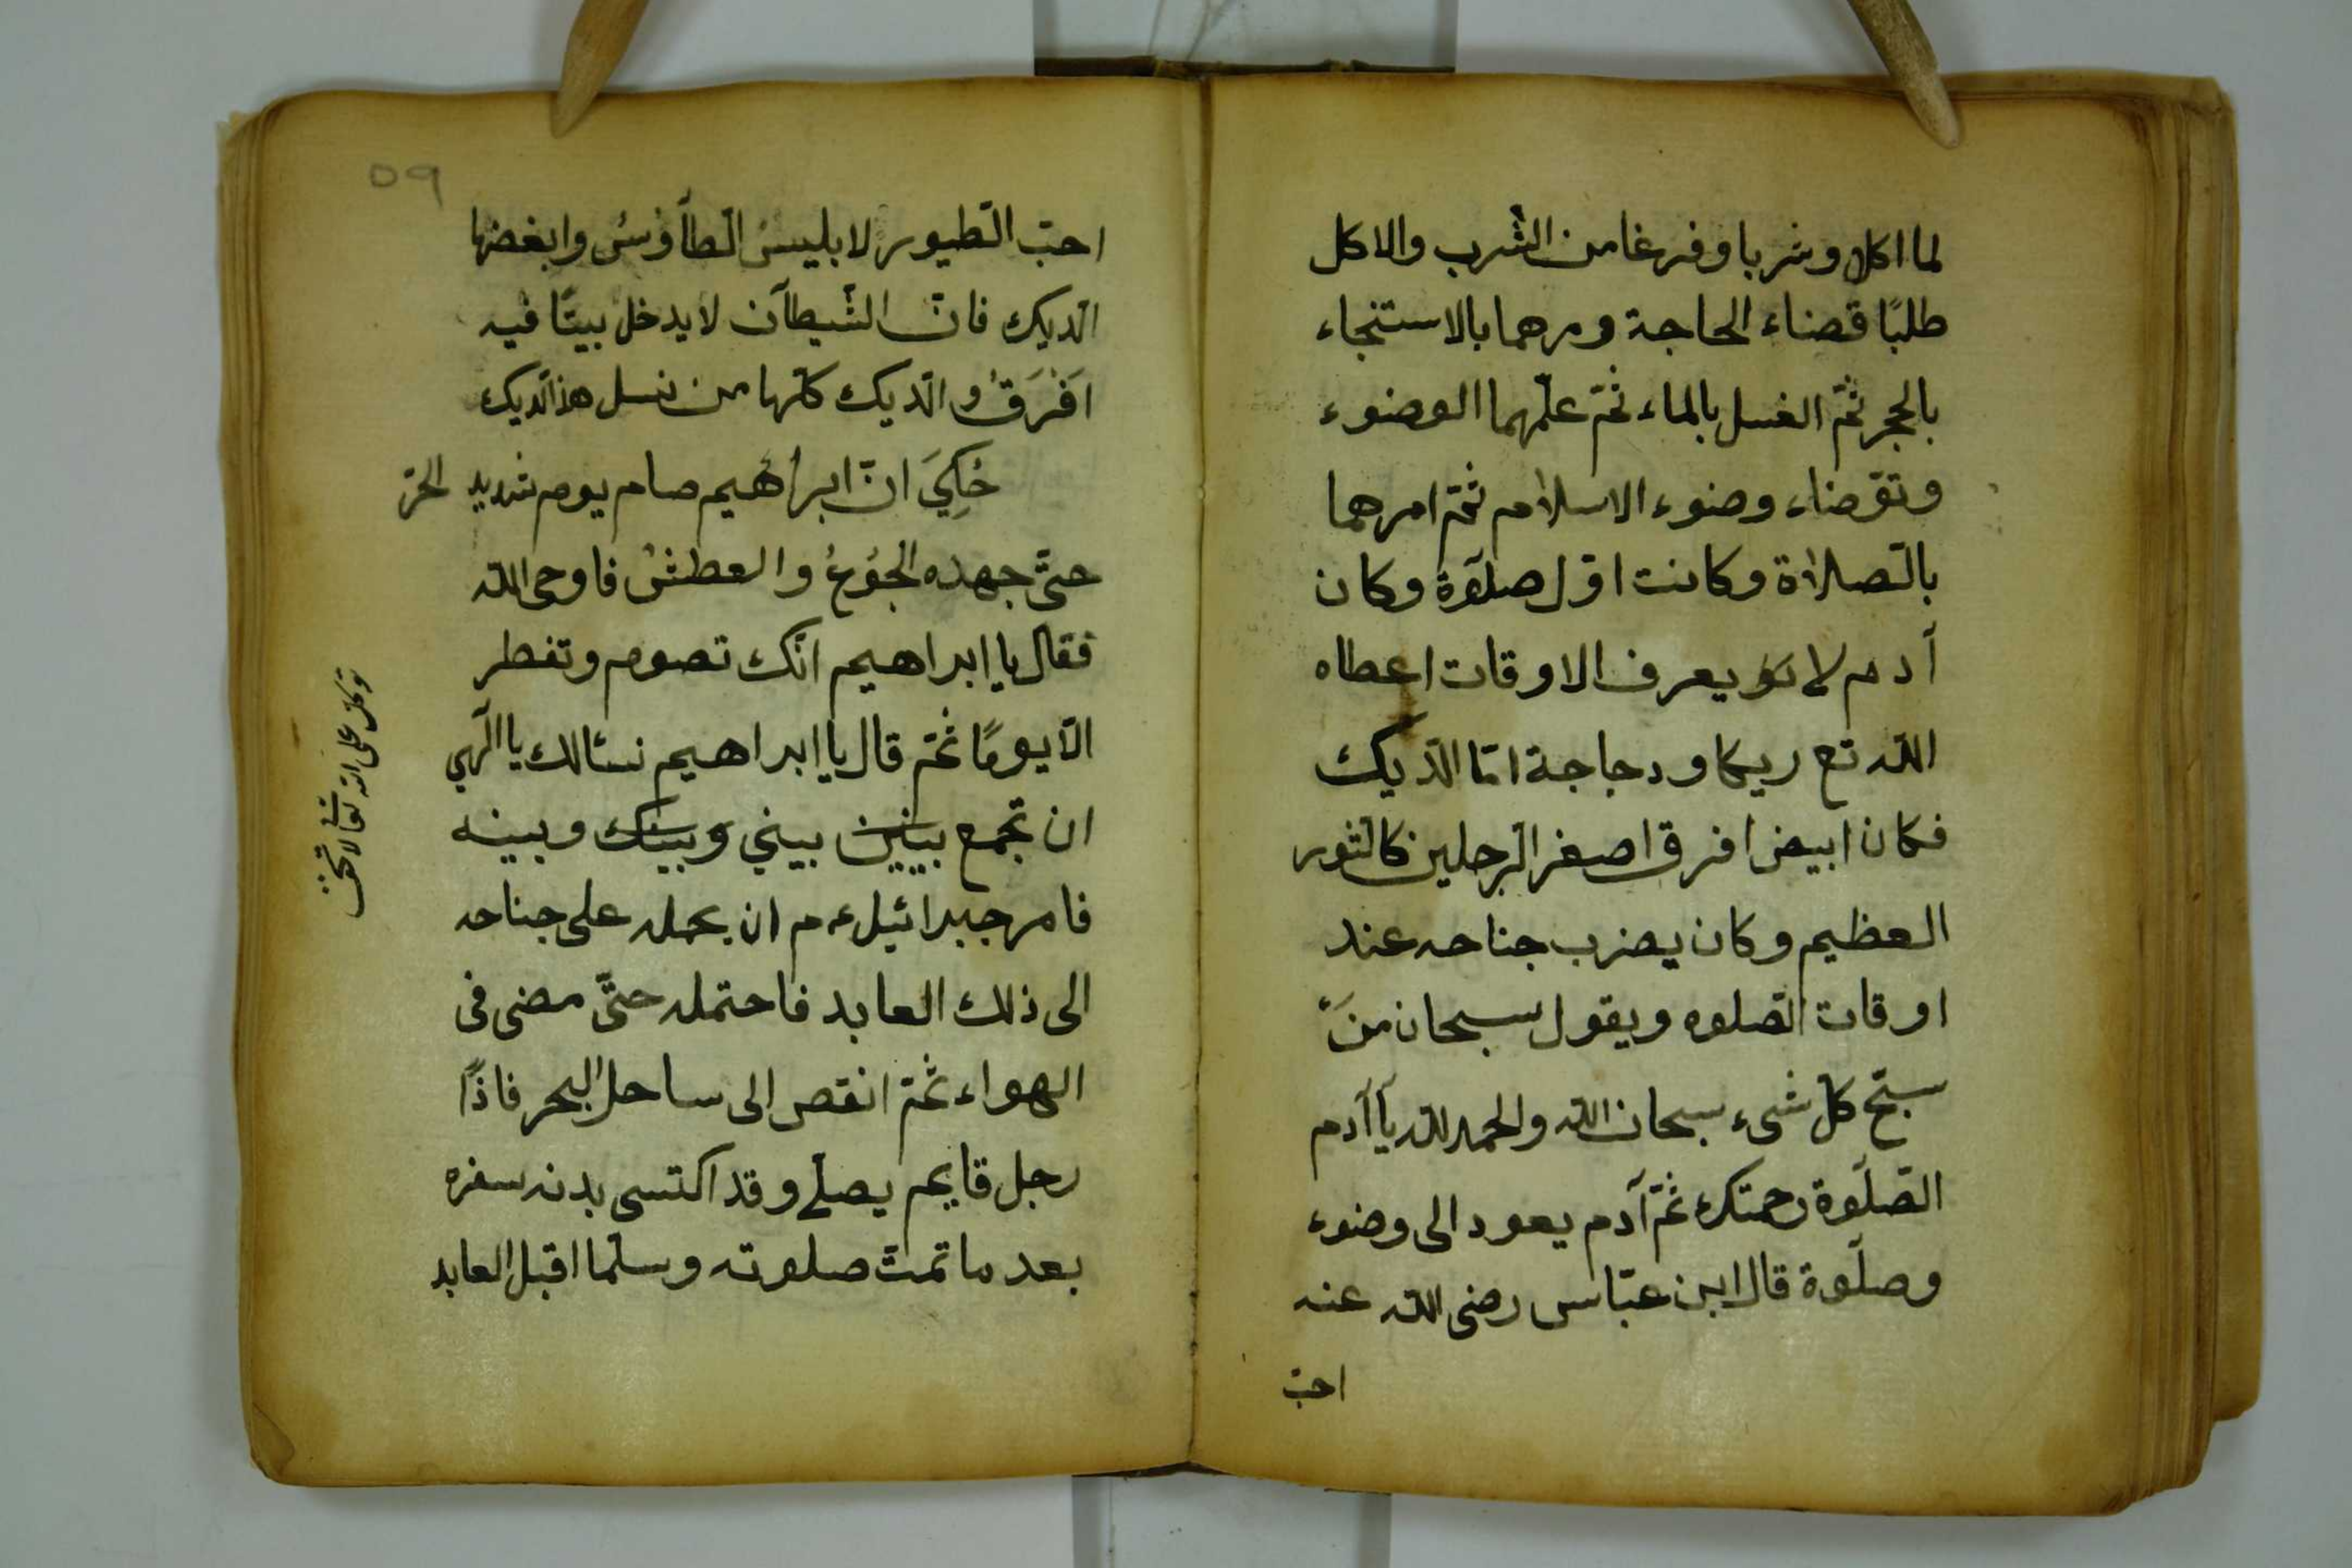 لما اكلا وشربا وفرغا من الشّرب والاكل
طلبًا قضاء الحاجة ومرهما بالاستنجاء
بالحجر ثمّ الغسل بالماء ثمّ علّمهما الوضوء
وتوّضاء وضوء الاسلام ثمّ امرهما
بالصّلاة وكانت اوّل صلوٓة وكان
آدم لا يعرف الاوقات اعطاه
اللّه تع ريكا ودجاجة امّا الدّيك
فكان ابيض افرق اصفر الرّجلين كالثّور
العظيم وكان يضرب جناحه عند
اوقات الصّلوه ويقول سبحان مَنْ
سبّح كلّ شىء سبحان اللّه والحمد للّه يآ آدم
الصّلوٓة رحمتك ثمّ آدم يعود الى وضوء
وصلوٓة قال ابن عبّاس رضى اللّه عنه
احبّ
٥٩
احبّ الطّيور لابليس الطّآوُسُ وابغضها
الدّيك فانّ الشّيطآن لا يدخل بيتًا فيه
اَفْرَقُ والدّيك كلّها من نسل هذ الدّيك
حُكِيَ انّ ابراهيم صام يوم شديد الحرّ
حتّى جهده الجُوُعُ والعطشُ فاوحى اللّه
فقال يا ابراهيم انّك تصوم وتفطر
الّا يومًا ثمّ قال يا ابراهيم نسئالك يا الٓهي
ان تجمع بينين بيني وبينك وبينه
فامر جبرائيل ءم ان يحمله على جناحه
الى ذلك العابد فاحتمله حتّى مضى فى
الهواء ثمّ انقص الى ساحل البحر فاذًا
رجل قايم يصلّے وقد اكتسى بدنه سفره
بعد ما تمّت صلوته وسلّما اقبل العابد
توكل على اللّه تعالى لا تخف